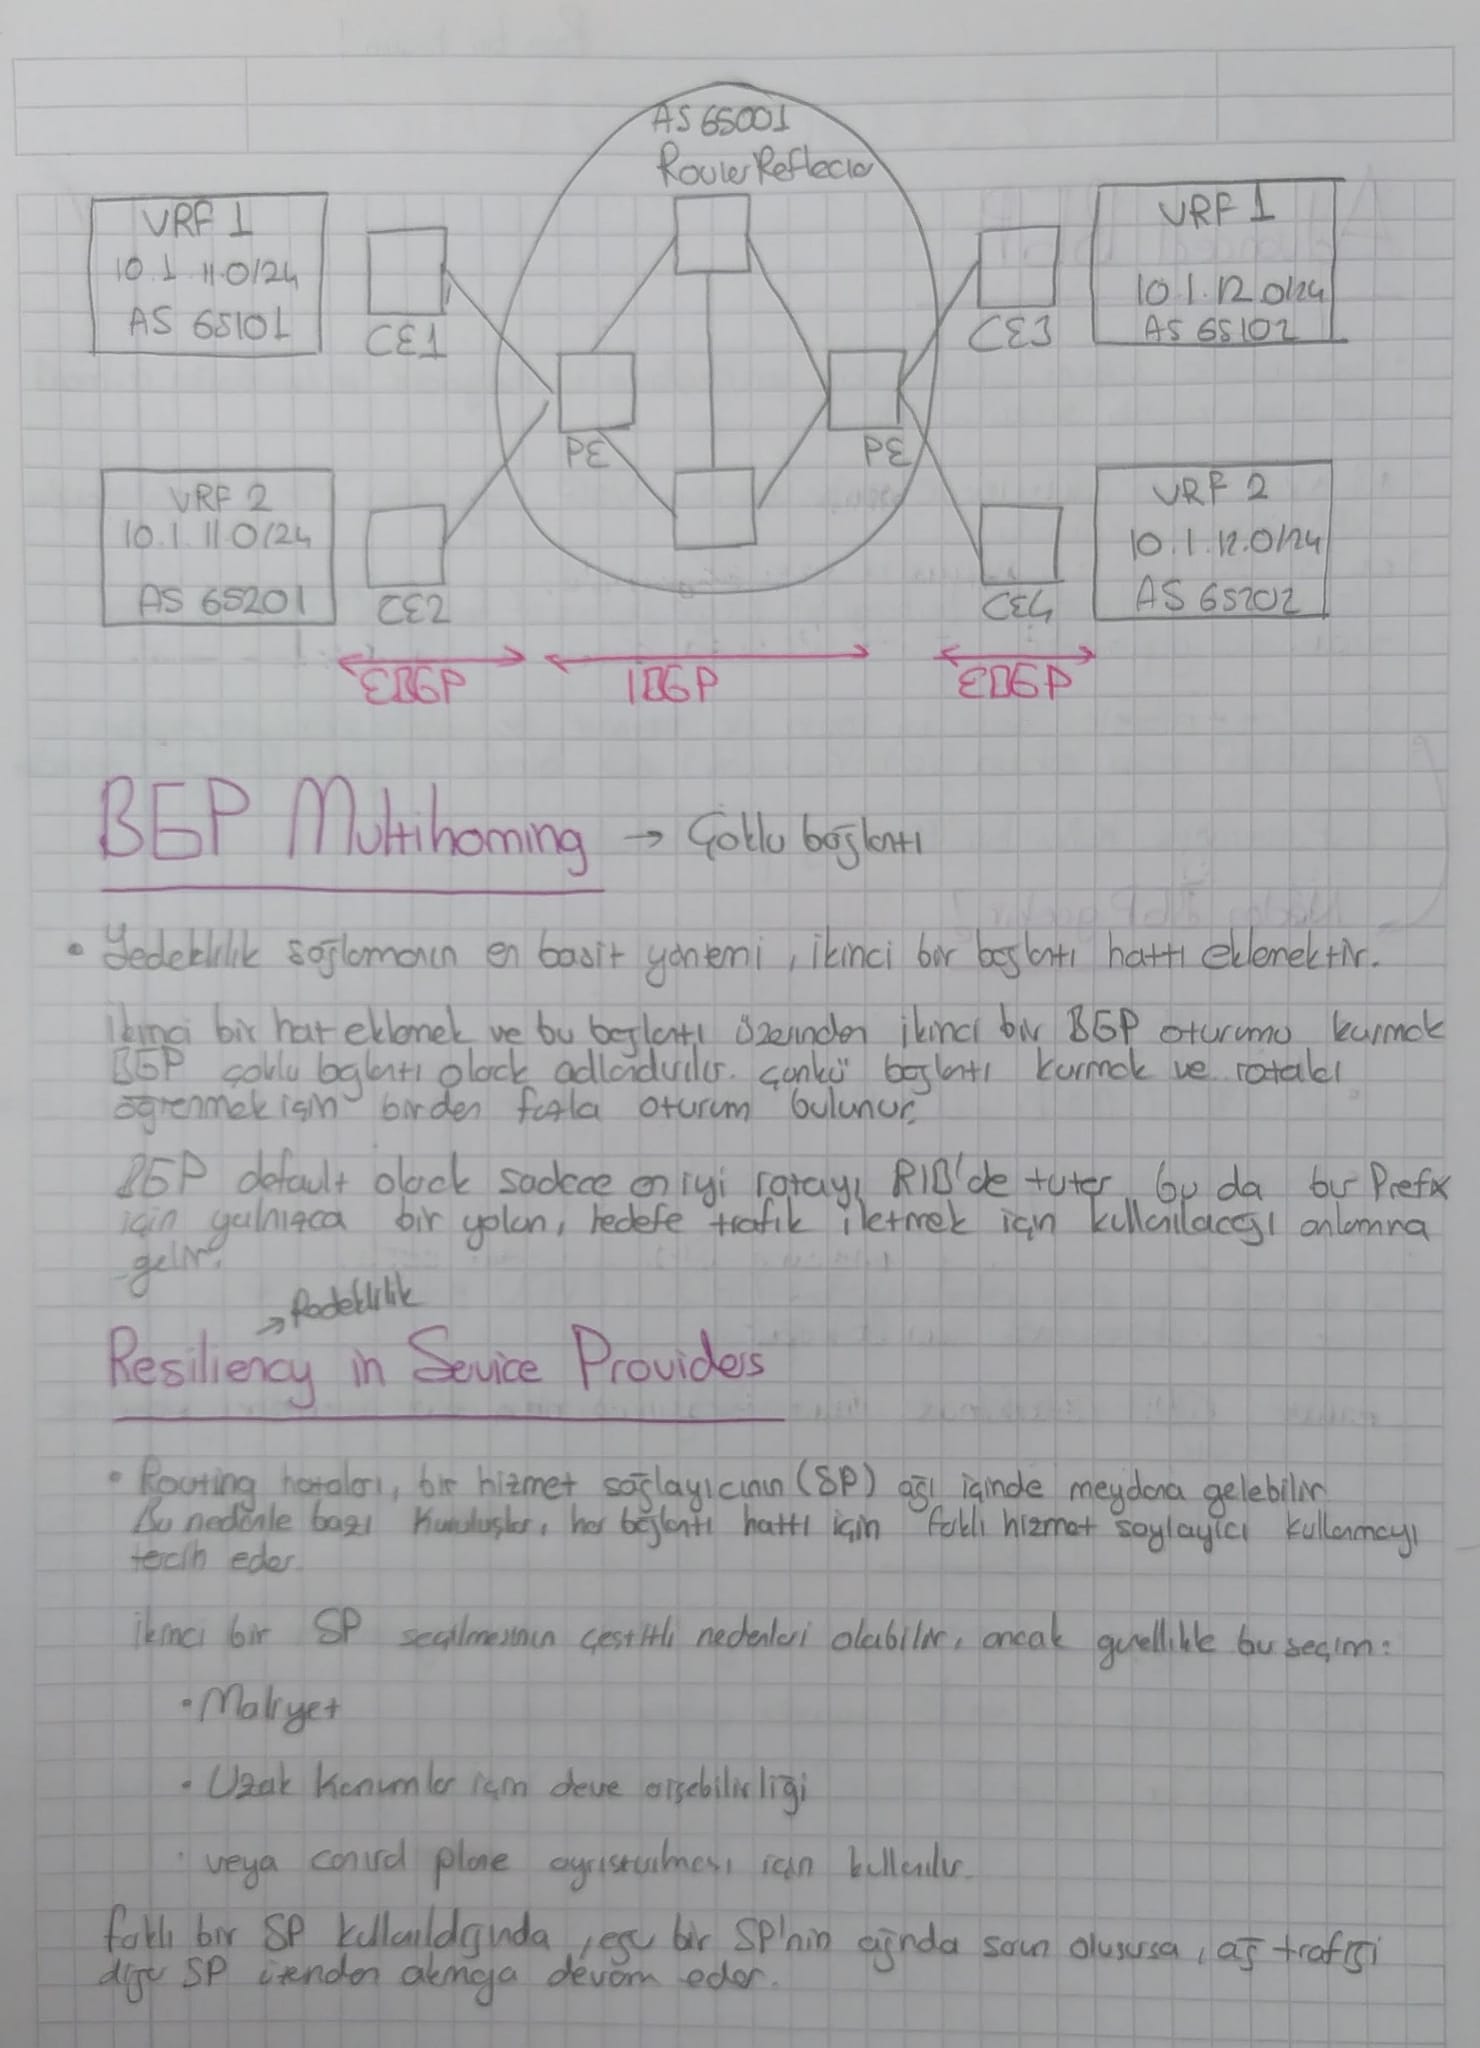 AS 65001
Router Reflector
VRF 1
10.1.11.0/24
AS 65101
CE1
VRF 1
10.1.12.0/24
AS 65102
CE3
PE
PE
VRF 2
10.1.11.0/24
AS 65201
CE2
VRF 2
10.1.12.0/24
AS 65202
CE4
EBGP
IBGP
EBGP
BGP Multihoming → Çoklu bağlantı
• Yedeklilik sağlamanın en basit yöntemi, ikinci bir bağlantı hattı eklemektir.
İkinci bir hat eklemek ve bu bağlantı üzerinden ikinci bir BGP oturumu kurmak
BGP çoklu bğlantı olarak adlandırılır. Çünkü bağlantı kurmak ve rotaları
öğrenmek için birden fazla oturum bulunur.
BGP default olarak sadece en iyi rotayı RIB'de tutar, bu da bir Prefix
için yalnızca bir yolun, hedefe trafik iletmek için kullanılacağı anlamına
gelir.
→ Yedeklilik
Resiliency in Service Providers
• Routing hataları, bir hizmet sağlayıcının (SP) ağı içinde meydana gelebilir
Bu nedenle bazı kuruluşlar, her bağlantı hattı için farklı hizmet saylayıcı kullanmayı
tercih eder.
İkinci bir SP seçilmesinin çeşitli nedenleri olabilir, ancak genellikle bu seçim:
• Maliyet
• Uzak Konumlar için devre erişebilirliği
• veya control plane ayrıştırılması için kullanılır.
farklı bir SP kullanıldığında, eğer bir SP'nin ağında sorun oluşursa, ağ trafiği
diğer SP üzerinden akmaya devam eder.